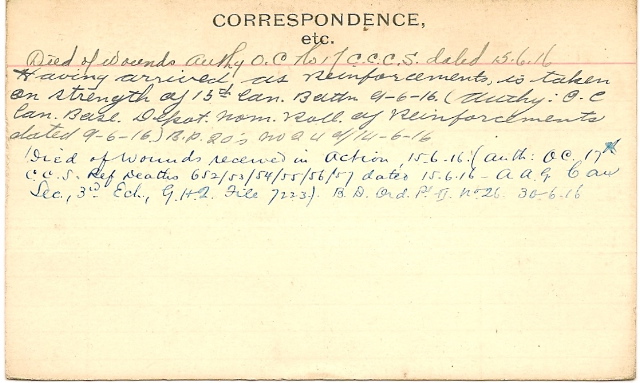 CORRESPONDENCE,
etc.
Died of Wounds Authy O.C. No 17 C.C.S. dated 15.6.16
Having arrived as Reinforcements, is taken
on strength of 15th Can. Battn 9-6-16. (Authy: O.C
Can. Base. Depot. Nom. Roll. of Reinforcements
dated 9-6-16) B.P. 20's No 24 of 14-6-16
Died of Wounds received in Action, 15.6.16. (Auth: O.C, 17th
C.C.S. Ref Deaths 652/53/54/55/56/57 dated 15.6.16 - A A G Can
Sec., 3rd Ech., G.H.Q. File 7233). B.D. Ord. Pt II. No 26. 30-6-16